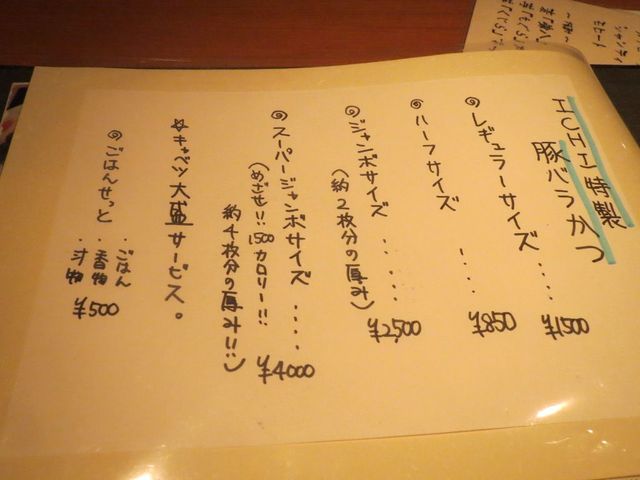 ICHI特製
豚バラかつ
◎レギュラーサイズ・・・・¥1500
◎ハーフサイズ・・・¥850
◎ジャンボサイズ・・・・¥2,500
(約2枚分の厚み)
◎スーパージャンボサイズ・・・・¥4000
(めざせ!!1500カロリー!!
約4枚分の厚み!!)
☆キャベツ大盛サービス。
◎ごはんせっと
・ごはん
・香物
・汁物
¥500